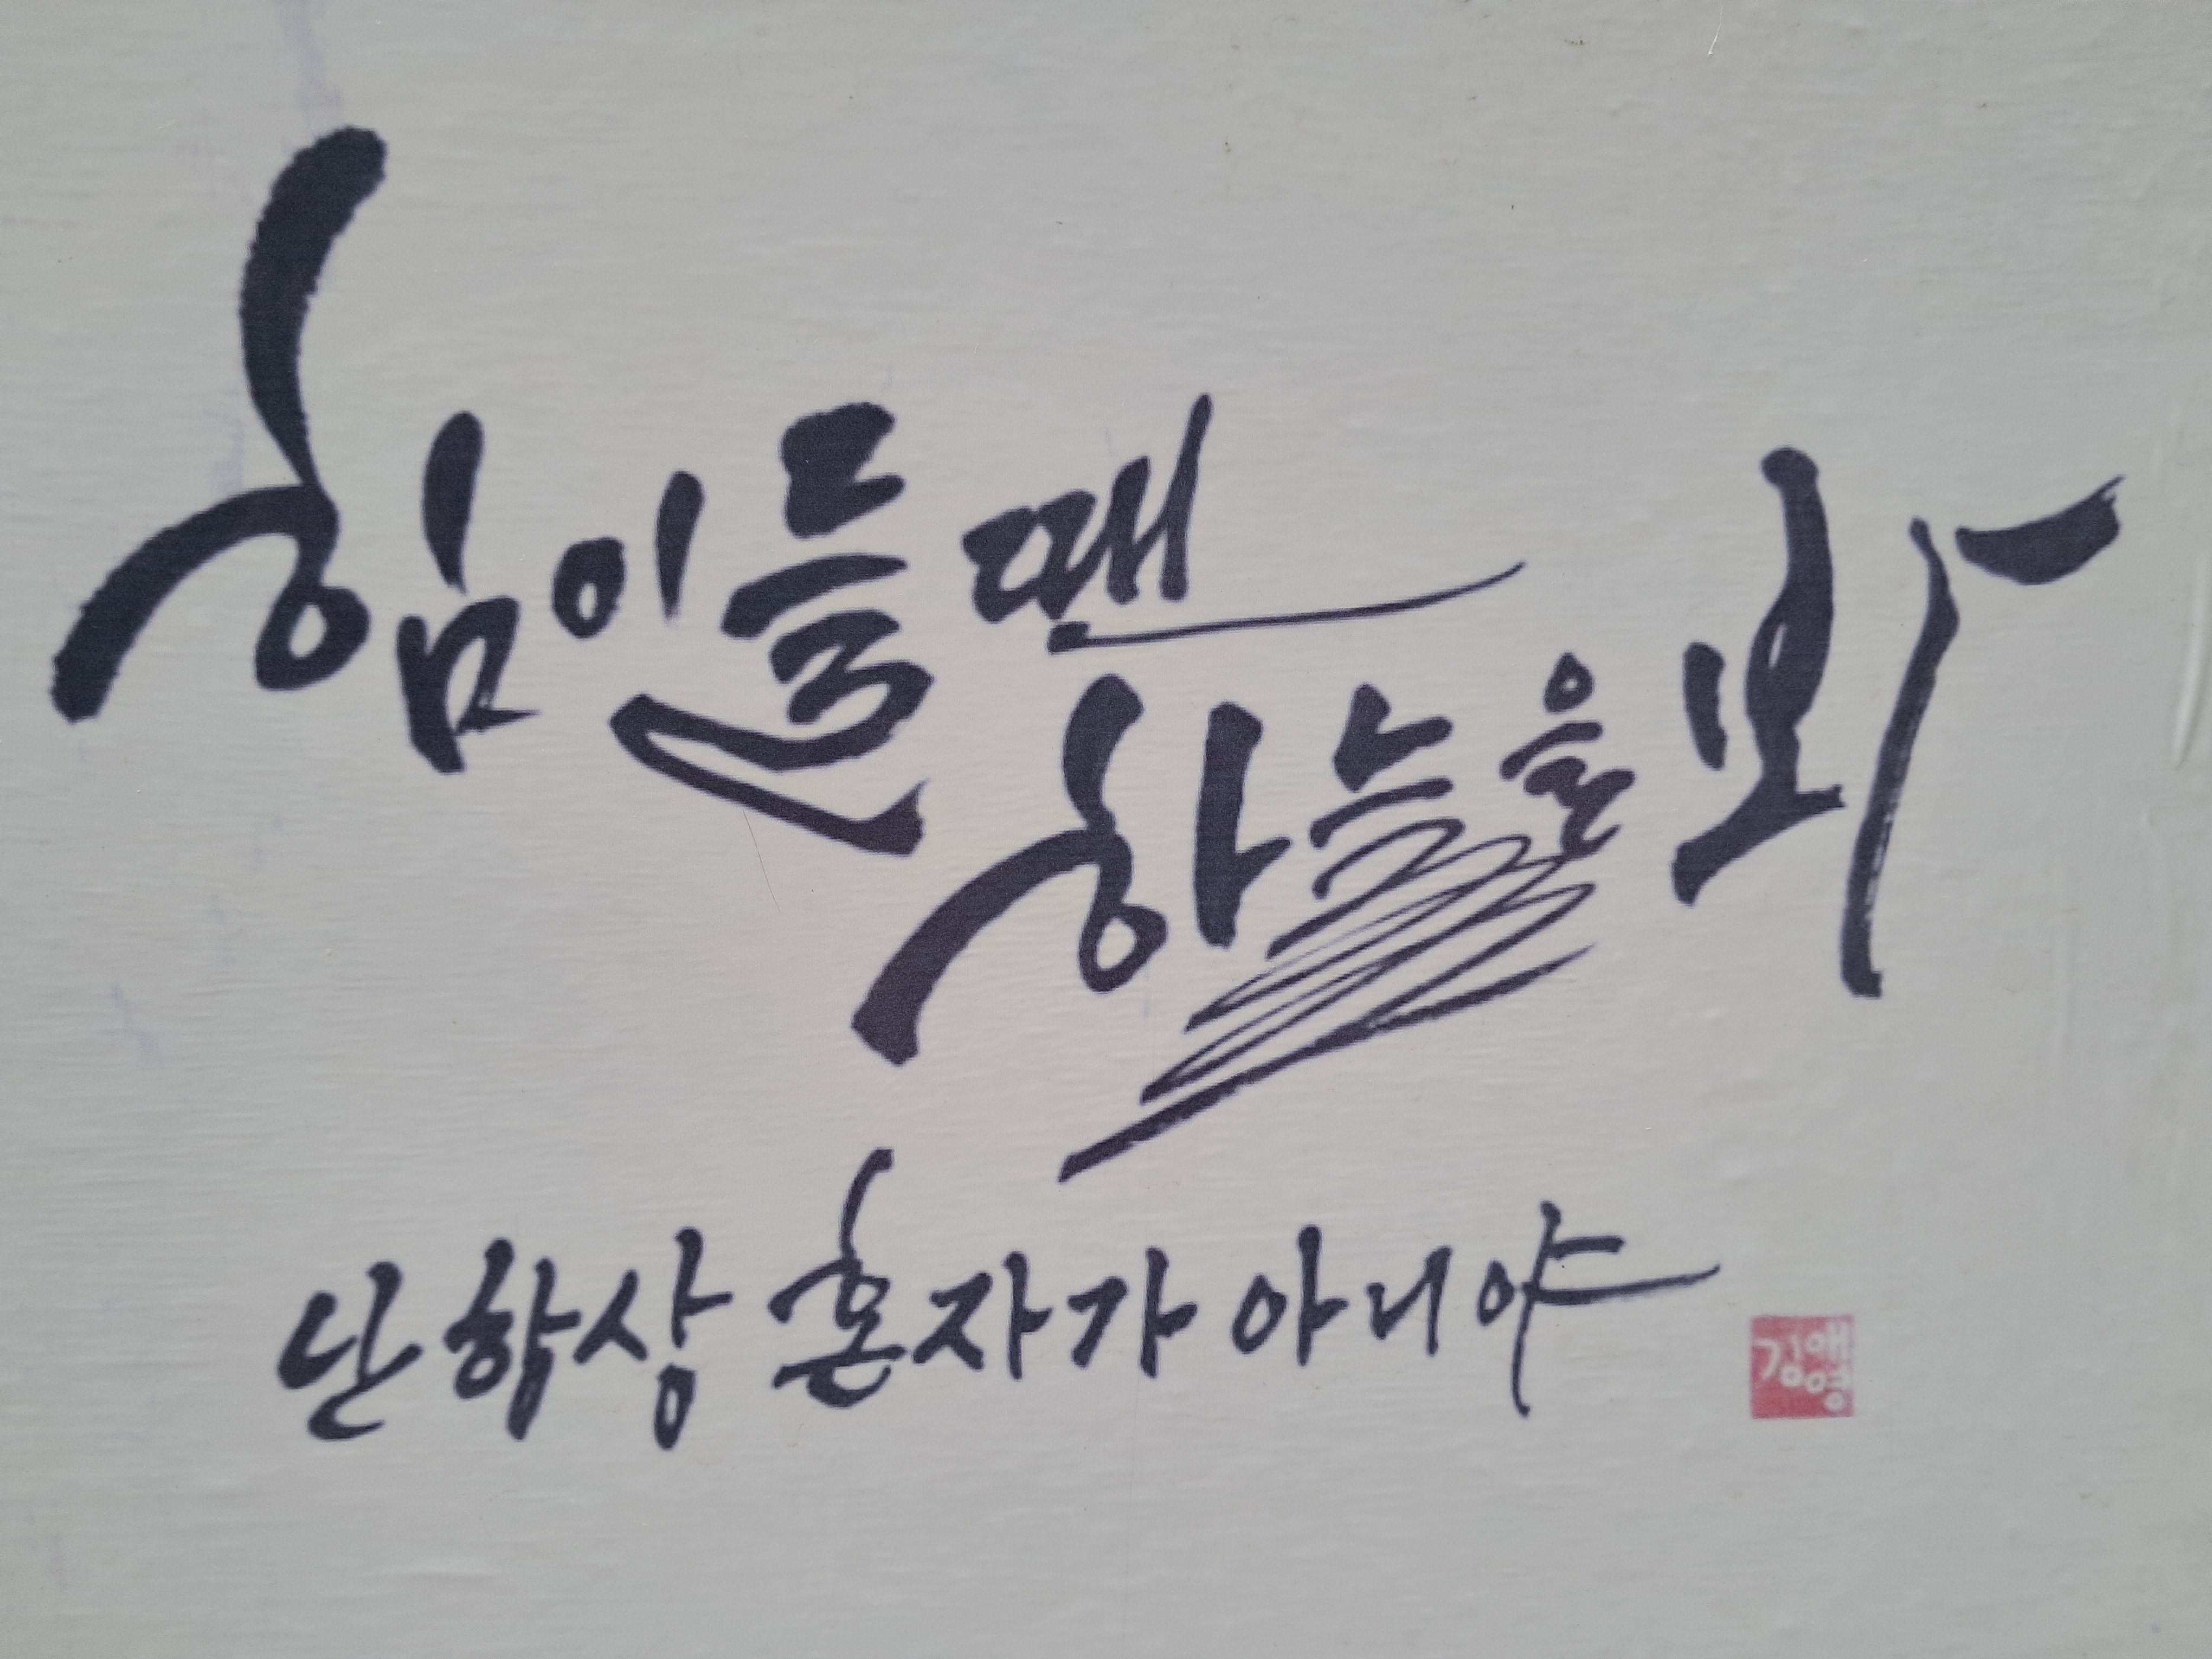 힘이들땐
하늘을 봐
넌 항상 혼자가 아니야